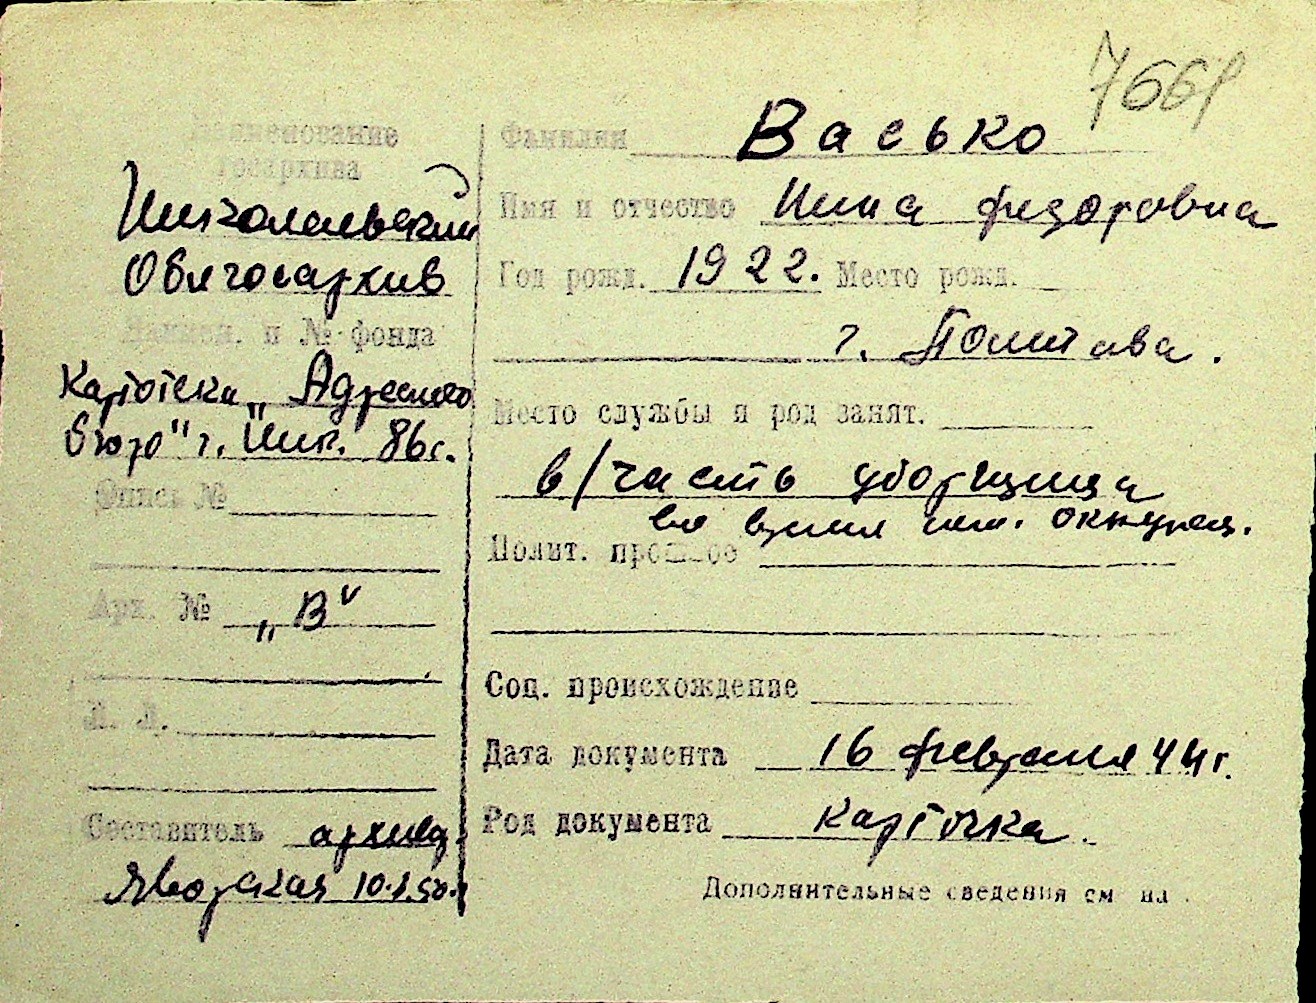 766
Наименование
госархива
Николаевский
Облгосархив
Наимен. и № фонда
Картотека „Адресного
бюро" г. Ник. 86с.
Опись №
Арх. № „В"
Л. Л.
Составитель архивд.
Яворская 10.1.50г.
Фамилия Васько
Имя и отчество Нина Федоровна
Год рожд. 1922. Место рожд.
г. Полтава.
Место службы и род занят.
в/часть уборщица
во время нем. оккупац.
Полит. прошлое
Соц. происхождение
Дата документа 16 февраля 44г.
Род документа карточка.
Дополнительные сведения см на